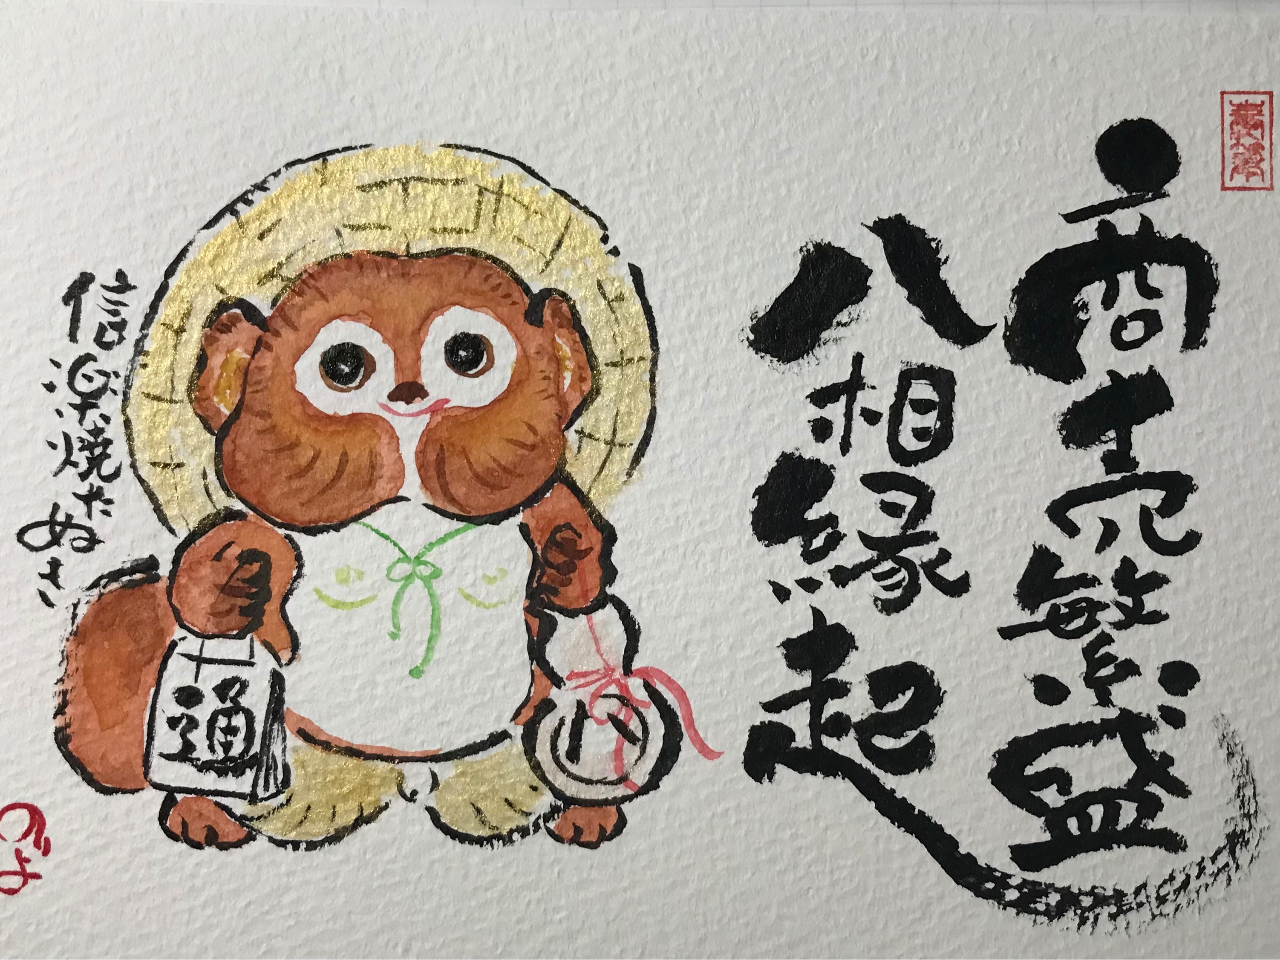 商売繁盛
八相縁起
信楽焼たぬき
通
八
のぶよ